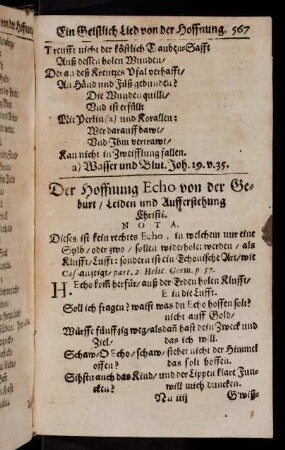 Ein Geistlich Lied von der Hoffnung. 567
Treufft nicht der köstlich Tauben-Safft
Auß dessen holen Wunden/
Der an deß Kreutzes Pfal verhafft/
An Händ und Füß gebunden?
Die Wunden quilli/
Und ist erfüllt
Mit Perlin (a) und Korallen:
Wer darauff bawt/
Und Ihm vertrawt/
Kan nicht in Zweifflung fallen.
a) Wasser und Blut. Joh. 19. v. 35.
Der Hoffnung Echo von der Ge-
burt/ Leiden und Aufferstehung
Christi.
NOTA.
Dieses ist kein rechtes Echo, in welchem nur eine
Sylb/ oder zwo/ sollen widerholet werden/ als
Klufft/ Lufft: sondern ist ein Echonische Art/ wie
Cas anzeigt/ part. 2. Helic. Germ. p. 57.
H. Echo kom herfür/ auß der Erden holen Klufft/
E in die Lufft.
Soll ich fragen? waist was du Echo hoffen solt?
nicht auff Gold/
Würff fünffzig weg/ alsdañ hast dein Zweck und
Ziel/ das ich will.
Schaw/ O Echo/ schaw/ stehet nicht der Himmel
offen? das solt hoffen.
Sihstu auch das Kind/ und der Lippen klare Fun-
cken? will mich duncken.
Nn iiij G'wiß-